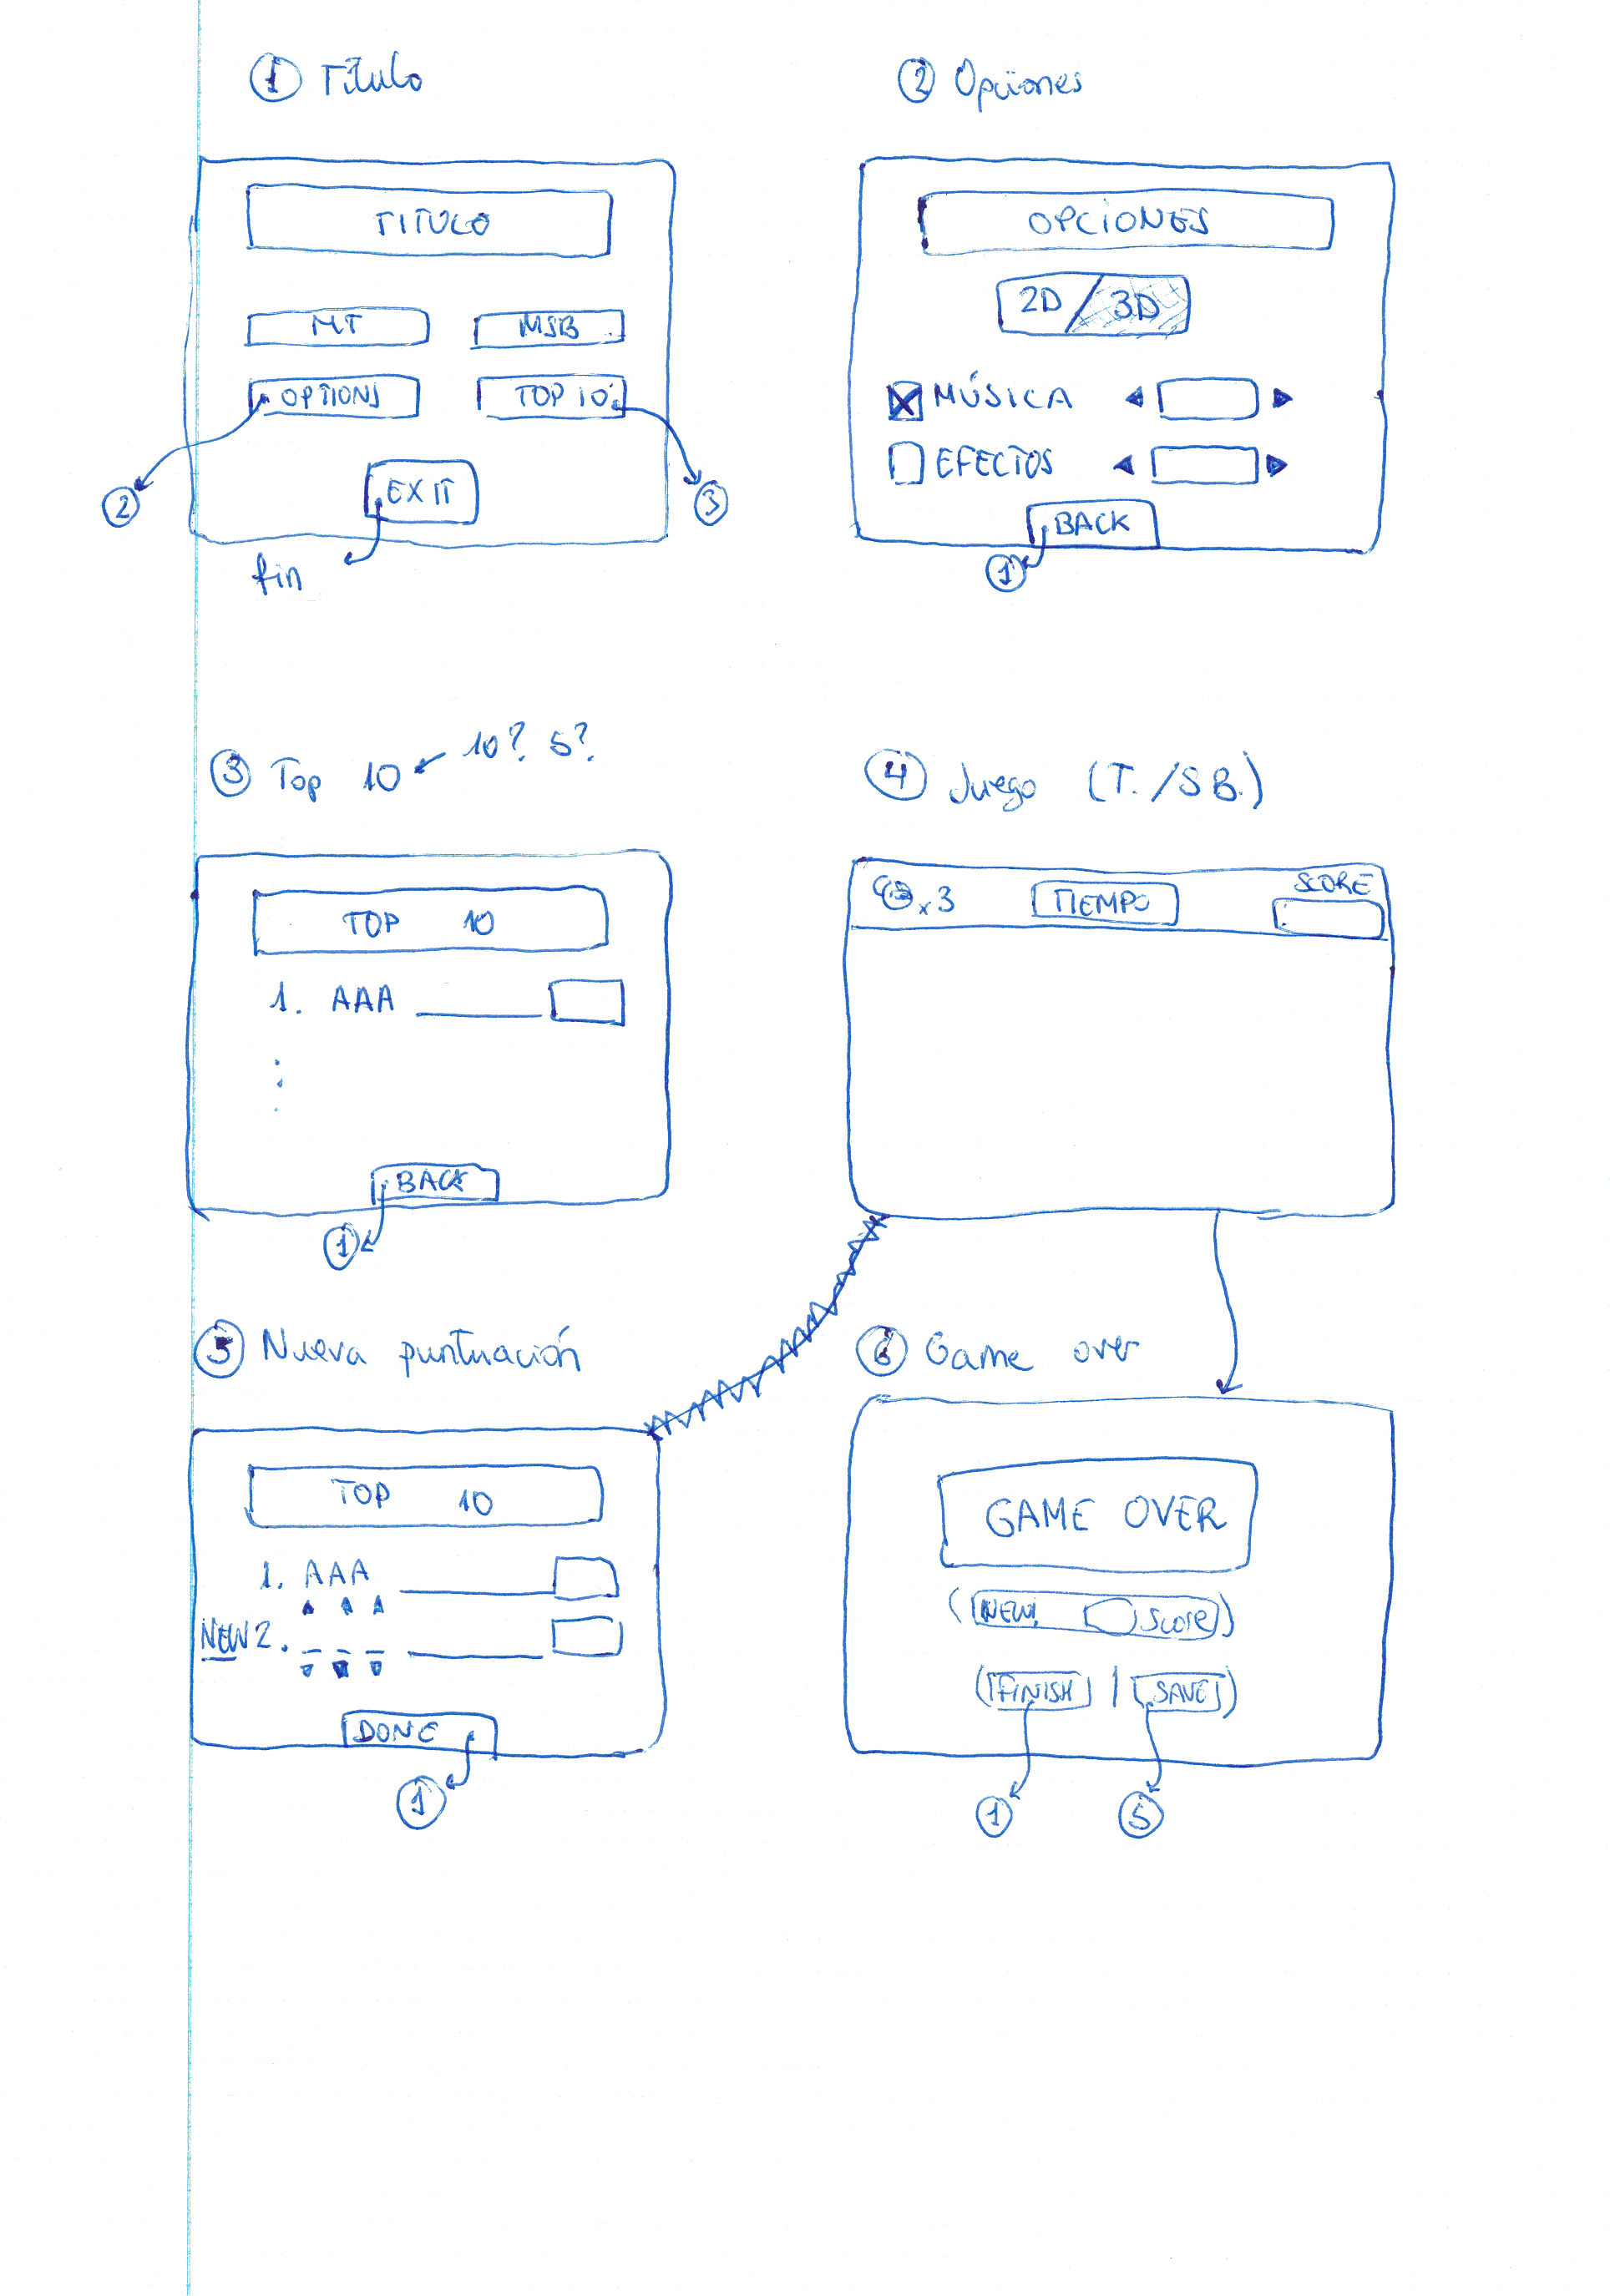 1 Título
TITULO
MT MSB
OPTIONS TOP 10
EXIT
2 3
fin
2 Opciones
OPCIONES
2D/3D
MÚSICA
EFECTOS
BACK
1
3 Top 10 10? 5?
TOP 10
1. AAA
BACK
1
4 Juego (T./SB.)
x3 TIEMPO SCORE
5 Nueva puntuación
TOP 10
1. AAA
NEW 2.
DONE
1
6 Game over
GAME OVER
(NEW! Score)
(FINISH | SAVE)
1 5